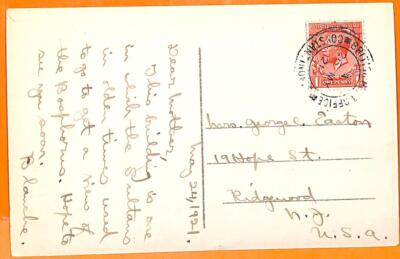 May 24, 1921.
Dear Mother,
This building is one
in which the Sultans
in older times used
to go to get a view of
the Bosphorus. Hope to
see you soon.
Blanche.
BRITISH OFFICE
CONSTANTINOPLE
1
Mrs. George C. Easton
19 Hope St.
Ridgewood
N.J.
U.S.A.